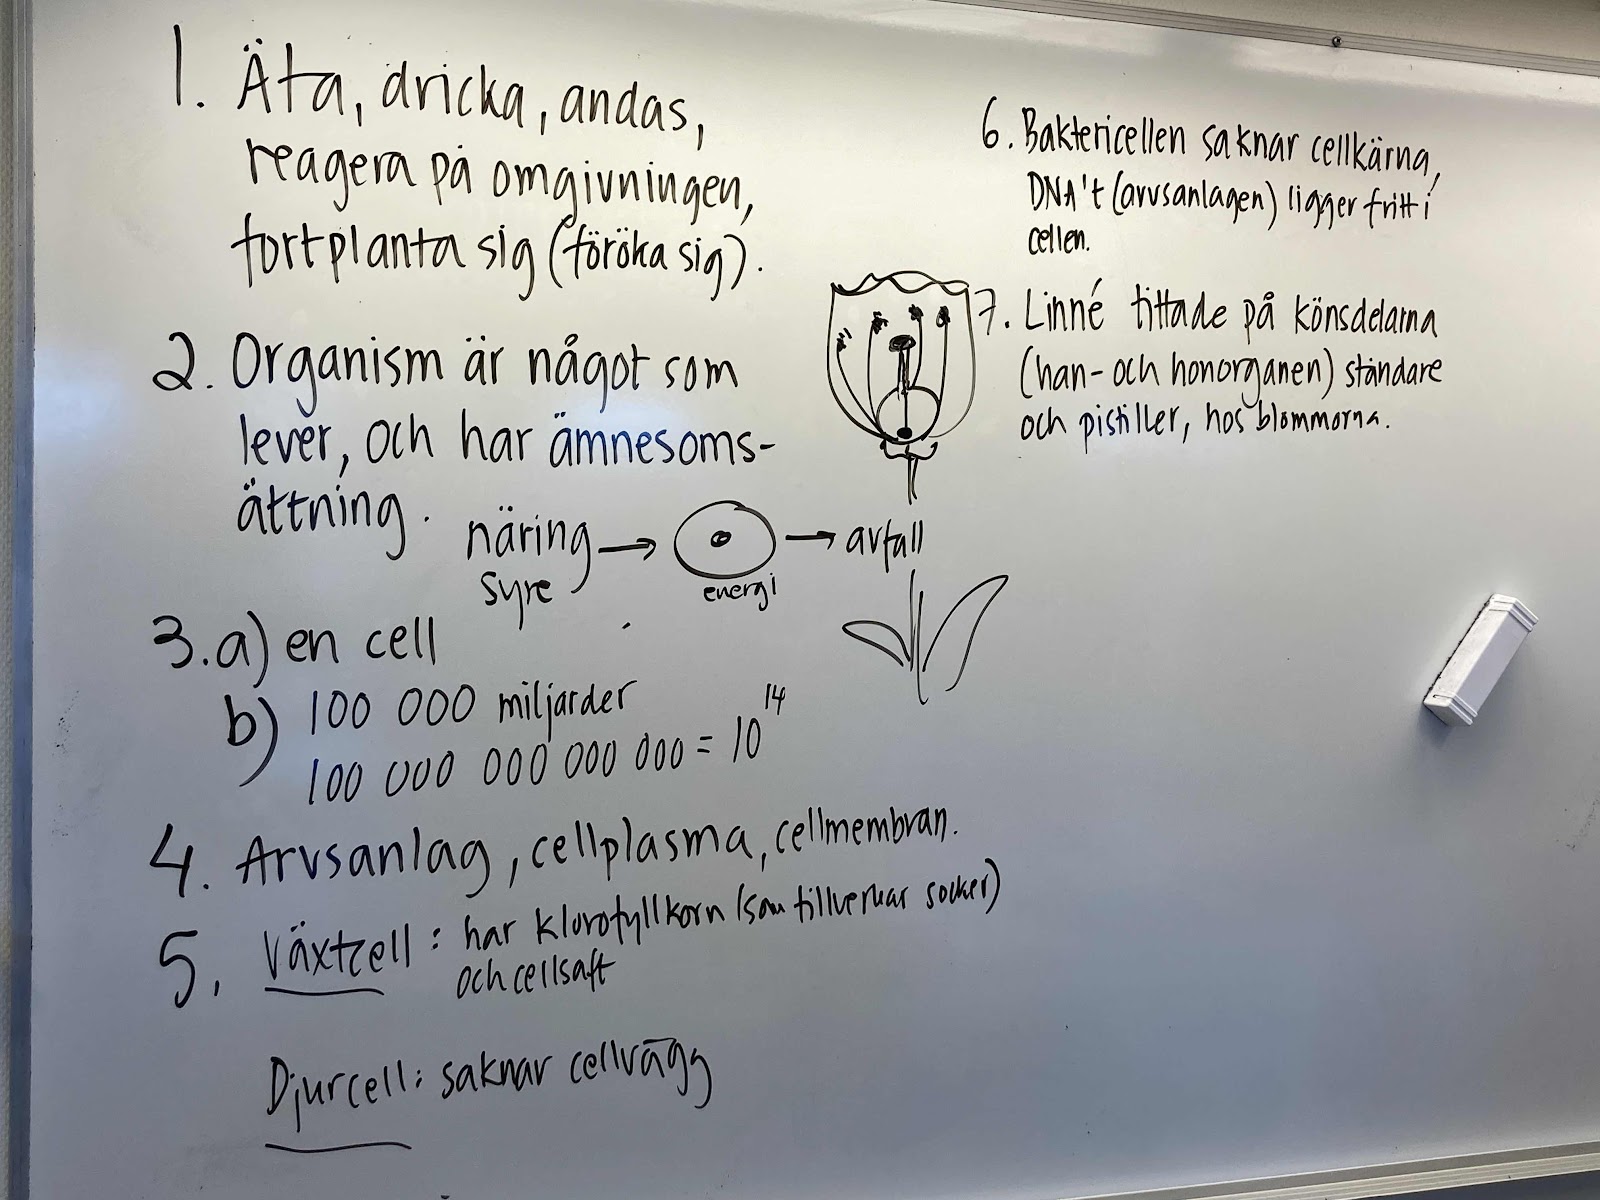 1. Äta, dricka, andas,
reagera på omgivningen,
fortplanta sig (föröka sig).
2. Organism är något som
lever, och har ämnesoms-
ättning.
näring → → avfall
syre
energi
3. a) en cell
b) 100 000 miljarder
100 000 000 000 000 = 10¹⁴
4. Arvsanlag, cellplasma, cellmembran.
5. Växtcell: har klorofyllkorn (som tillverkar socker)
och cellsaft
Djurcell: saknar cellvägg
6. Baktericellen saknar cellkärna,
DNA't (arvsanlagen) ligger fritt i
cellen.
7. Linné tittade på könsdelarna
(han- och honorganen) ståndare
och pistiller, hos blommorna.